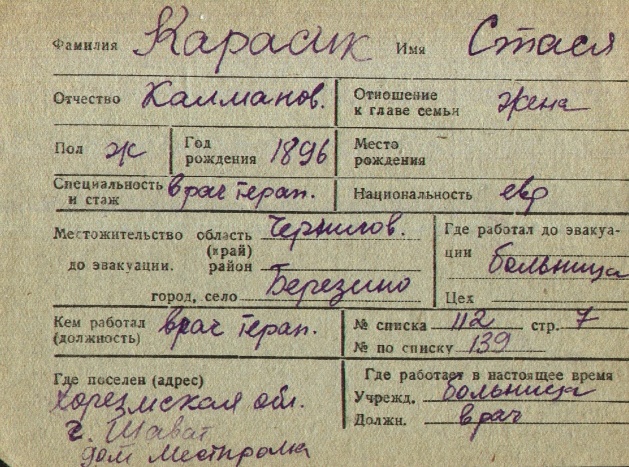 Фамилия Карасик Имя Стася
Отчество Калманов. Отношение к главе семьи жена
Пол ж Год рождения 1896 Место рождения
Специальность и стаж врач терап. Национальность евр
Местожительство до эвакуации. область (край) Чернигов.
район
город, село Березино
Где работал до эвакуации больница
Цех
Кем работал (должность) врач терап.
№ списка 112 стр. 7
№ по списку 139
Где поселен (адрес)
Хорезмская обл.
г. Шават
дом Местпрома
Где работает в настоящее время
Учрежд. больница
Должн. врач